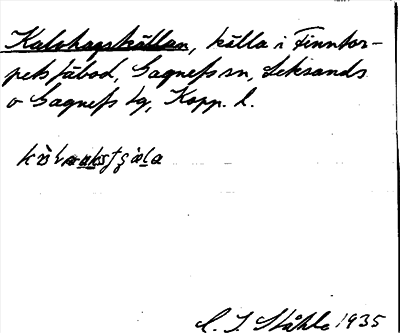 Kalshagskällan, källa i Finntor-
pets fäbod, Gagnefs sn, Leksands
o Gagnefs tg, Kopp. l.
C. I. Ståhle 1935